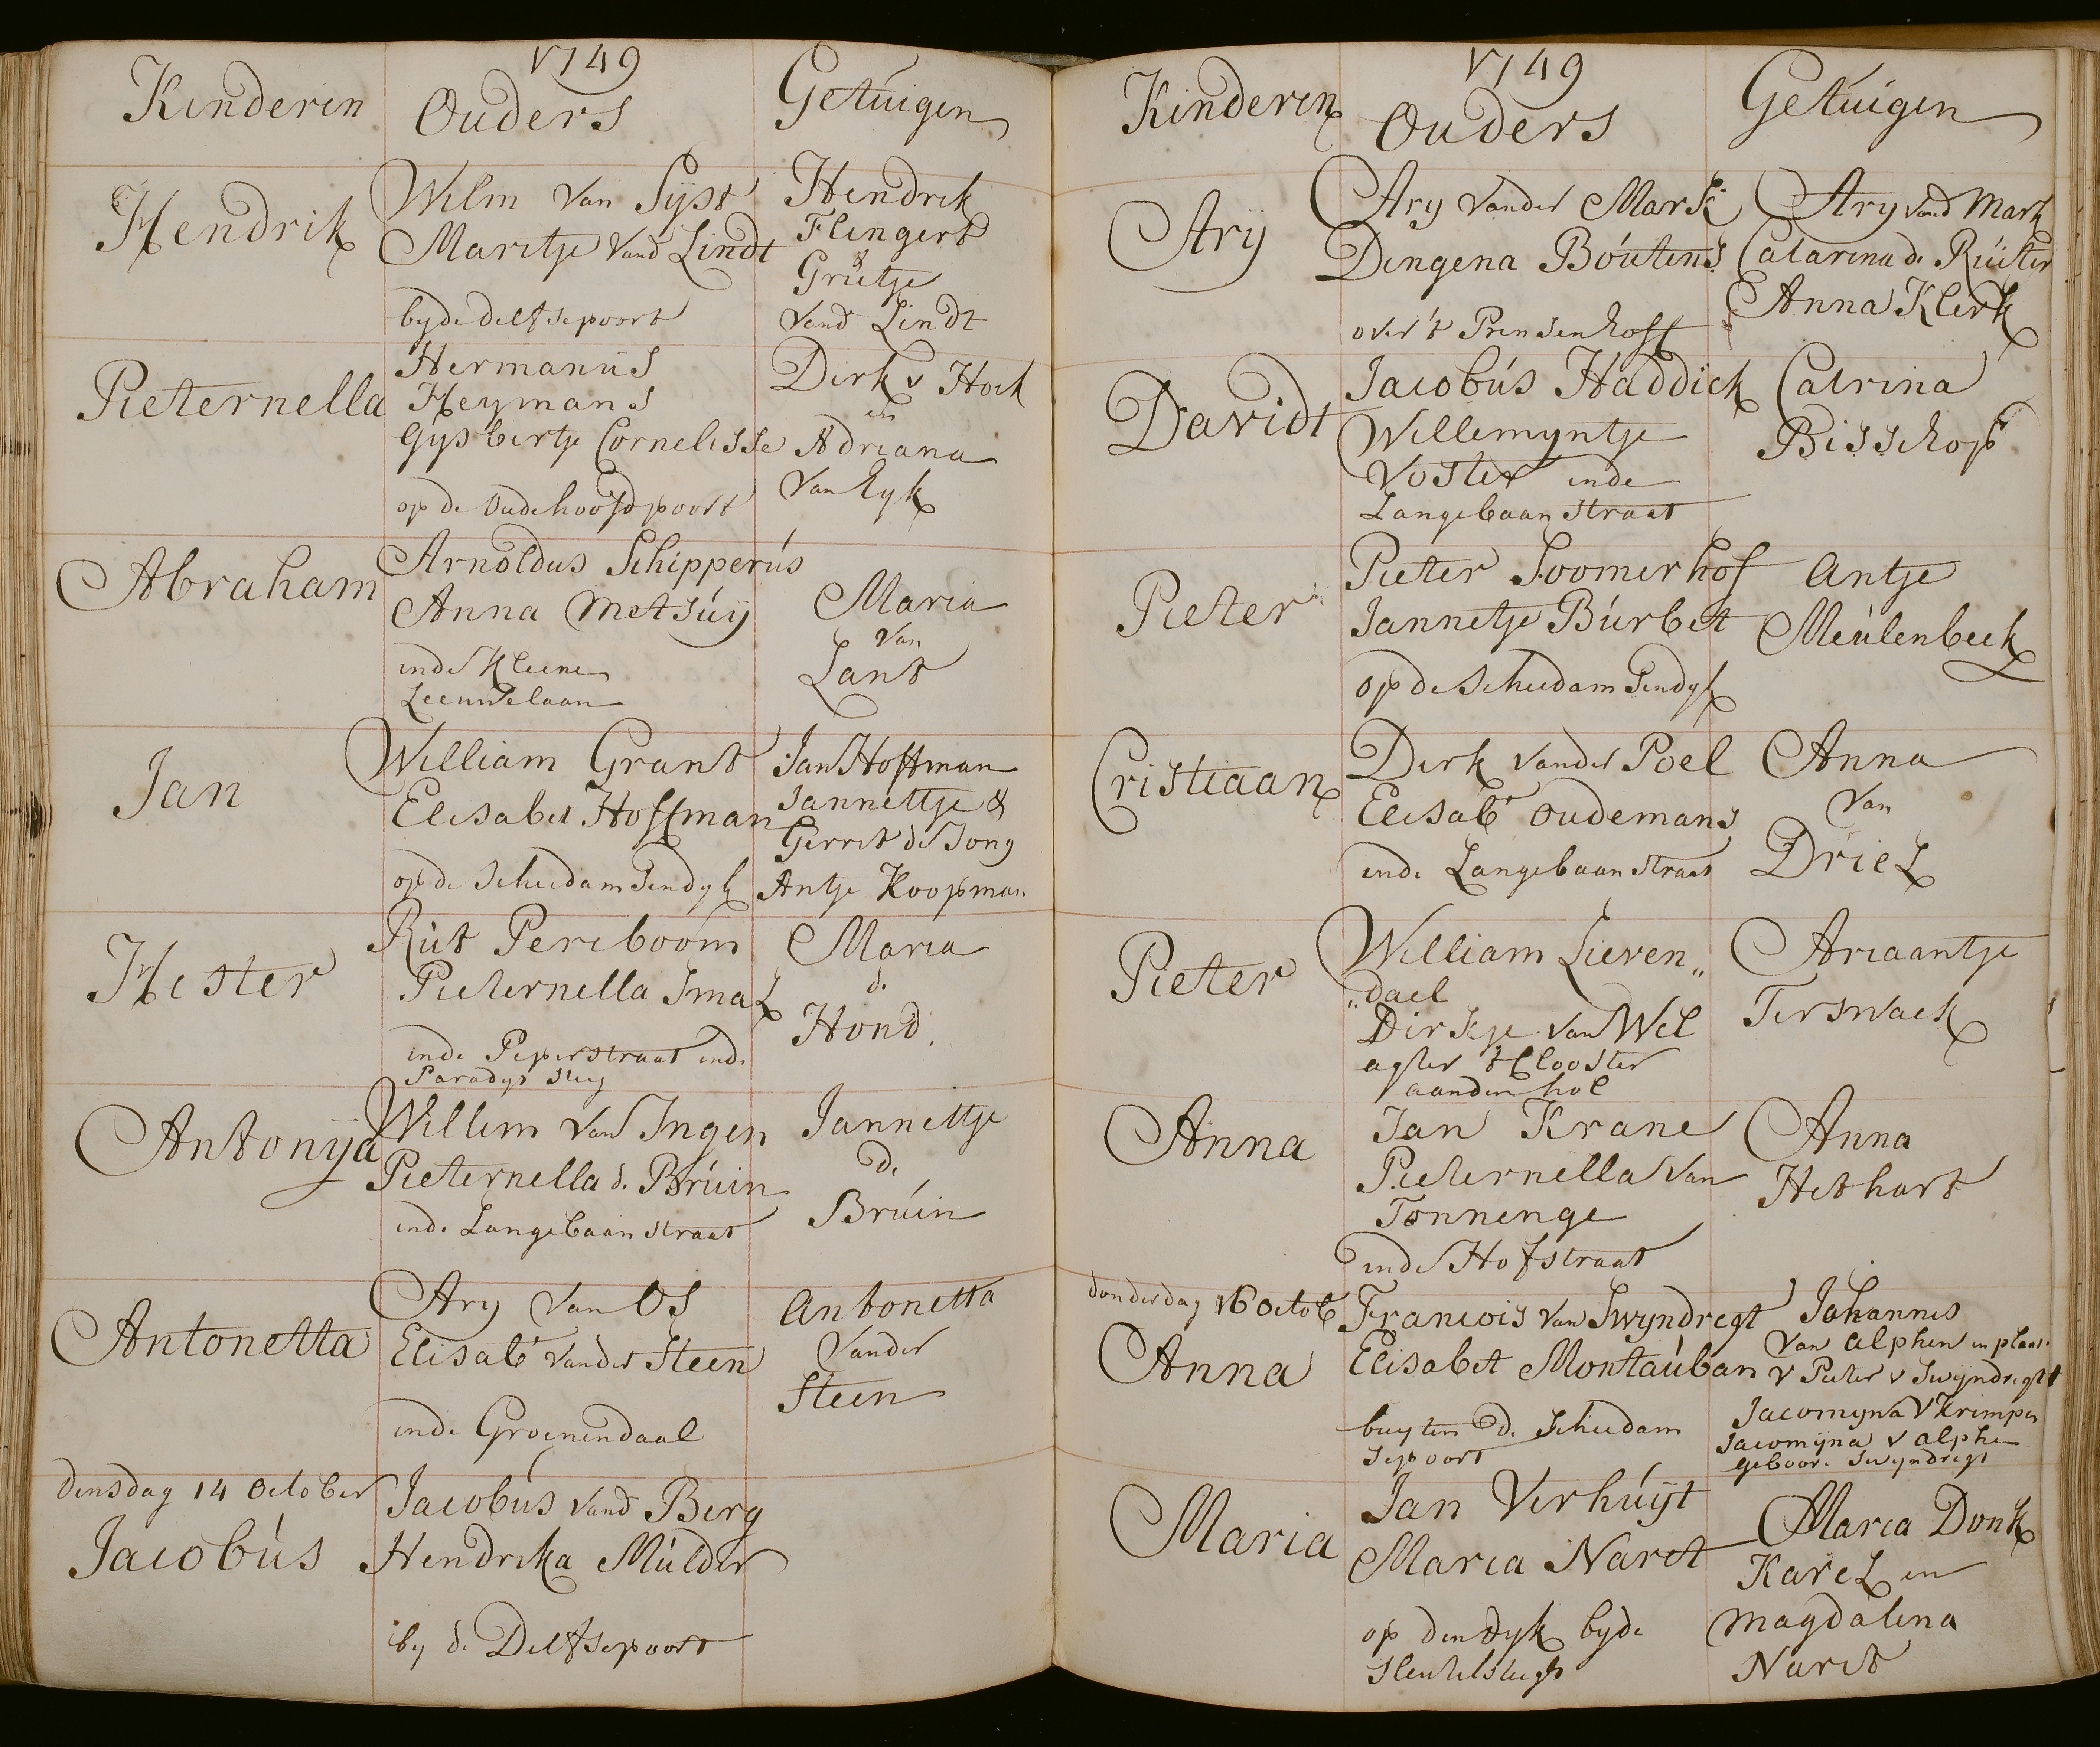 1749
Kinderen Ouders Getuigen
Hendrik
Wilm van Sijst
Maritje vand Lindt
byde delftsepoort
Hendrik
Flingert
&
Grietje
vand Lindt
Pieternella
Hermanus
Heymans
Gijsbertje Cornelisse
op de oudehoofdpoort
Dirk v Hoek
en
Adriana
van Eyk
Abraham
Arnoldus Schipperus
Anna Metsuij
inde Kleene
Leeuwelaan
Maria
van
Lant
Jan
William Grant
Elisabet Hoffman
op de Scheedamsendyk
Jan Hoffman
Jannettje &
Gerrit de Jong
Antje Koopman
Hester
Rut Pereboom
Pieternella Smal
inde Peperstraat inde
Paradys steeg
Maria
de
Hond.
Antonya
Willem van Ingen
Pieternella d. Bruin
inde Langebaanstraat
Jannettje
de
Bruin
Antonetta
Ary van Os
Elisabt vander Steen
inde Groenendaal
Antonetta
vander
Steen
densdag 14 October
Jacobus
Jacobus vand Berg
Hendrika Mulder
by de Delftsepoort
1749
Kinderen Ouders Getuigen
Ary
Ary vander Mark
Dengena Boutens
over't Prinsenhoff
Ary vand Mark
Catarina de Ruiter
Anna Klerk
Davidt
Jacobus Haddick
Willemyntje
Voster inde
Langebaanstraat
Catrina
Bisschop
Pieter
Pieter Soomerhof
Jannetje Burbet
op de Scheedamsendyk
Antje
Meulenbeek
Cristiaan
Derk vander Poel
Elisabt Oudemans
inde Langebaanstraat
Anna
van
Driel
Pieter
William Lieven„
„dael
Dirkje van Wel
agter 't Clooster
aanden hol
Ariaantje
Terswaek
Anna
Jan Krane
Pieternella van
Tonnenge
inde Hofstraat
Anna
Hethart
donderdag 16 Octob
Anna
Francois van Swyndregt
Elisabet Montauban
buyten de Scheedam
sepoort
Johannes
van Alphen in plaat.
v Pieter v Swyndregt
Jacomyna v Krimpen
Jacomyna v Alphe
geboor. Swyndregt
Maria
Jan Verhuijt
Maria Naret
op den dyk byde
Sleutelsteegt
Maria Donk
Karel en
Magdalena
Naret